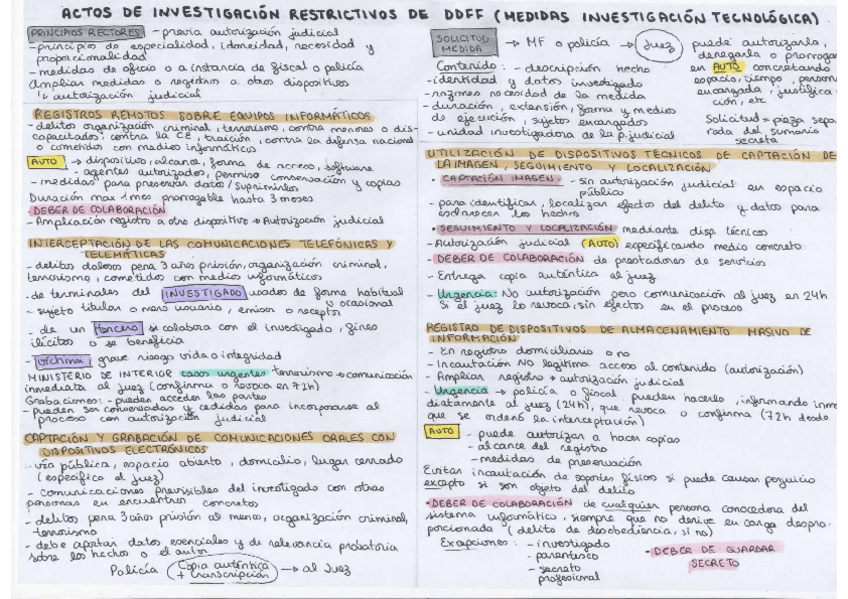 ACTOS DE INVESTIGACIÓN RESTRICTIVOS DE DDFF (MEDIDAS INVESTIGACIÓN TECNOLÓGICA)
PRINCIPIOS RECTORES - previa autorización judicial
- principios de especialidad, idoneidad, necesidad y
proporcionalidad
- medidas de oficio o a instancia de fiscal o policía
Ampliar medidas o registros a otros dispositivos
↳ autorización judicial
REGISTROS REMOTOS SOBRE EQUIPOS INFORMÁTICOS
- delitos organización criminal, terrorismo, contra menores o dis-
capacitados, contra la CE, traición, contra la defensa nacional
o cometidos con medios informáticos
AUTO → dispositivo, alcance, forma de acceso, software
- agentes autorizados, permiso conservación y copias
- medidas para preservar datos / suprimirlos
Duración max 1 mes prorrogable hasta 3 meses
DEBER DE COLABORACIÓN
- Ampliación registro a otro dispositivo → Autorización judicial
INTERCEPTACIÓN DE LAS COMUNICACIONES TELEFÓNICAS Y
TELEMÁTICAS
- delitos dolosos pena 3 años prisión, organización criminal,
terrorismo, cometidos con medios informáticos
- de terminales del INVESTIGADO usados de forma habitual
u ocasional
- sujeto titular o mero usuario, emisor o receptor
- de un tercero si colabora con el investigado, fines
ilícitos o se beneficia
- víctima grave riesgo vida o integridad
MINISTERIO DE INTERIOR casos urgentes terrorismo → comunicación
inmediata al juez (confirma o revoca en 72h)
Grabaciones: - pueden acceder las partes
- pueden ser conservadas y cedidas para incorporarse al
proceso con autorización judicial
CAPTACIÓN Y GRABACIÓN DE COMUNICACIONES ORALES CON
DISPOSITIVOS ELECTRÓNICOS
- vía pública, espacio abierto, domicilio, lugar cerrado
(especifica el juez)
- comunicaciones previsibles del investigado con otras
personas en encuentros concretos
- delitos pena 3 años prisión al menos, organización criminal,
terrorismo
- debe aportar datos esenciales y de relevancia probatoria
sobre los hechos o el autor
Policía Copia auténtica + transcripción → al Juez
SOLICITUD MEDIDA → MF o policía → Juez puede autorizarla,
denegarla o prorrogar
en AUTO concretando
espacio, tiempo, persona
encargada, justifica-
ción, etc
Contenido: - descripción hecho
- identidad y datos investigado
- razones necesidad de la medida
- duración, extensión, forma y medios
de ejecución, sujetos encargados
- unidad investigadora de la p. judicial
Solicitud = pieza sepa
rada del sumario
secreta
UTILIZACIÓN DE DISPOSITIVOS TÉCNICOS DE CAPTACIÓN DE
LA IMAGEN, SEGUIMIENTO Y LOCALIZACIÓN
• CAPTACIÓN IMAGEN: - sin autorización judicial en espacio
público
- para identificar, localizar efectos del delito y datos para
esclarecer los hechos
• SEGUIMIENTO Y LOCALIZACIÓN mediante disp. técnicos
- Autorización judicial (AUTO) especificando medio concreto
- DEBER DE COLABORACIÓN de prestadores de servicios
- Entrega copia auténtica al juez
- Urgencia: No autorización pero comunicación al juez en 24h
Si el juez lo revoca, sin efectos en el proceso
REGISTRO DE DISPOSITIVOS DE ALMACENAMIENTO MASIVO DE
INFORMACIÓN
- En registro domiciliario o no
- Incautación NO legitima acceso al contenido (autorización)
- Ampliar registro → autorización judicial
- Urgencia → policía o fiscal pueden hacerlo, informando inme
diatamente al juez (24h), que revoca o confirma (72h desde
que se ordenó la interceptación)
AUTO - puede autorizar a hacer copias
- alcance del registro
- medidas de preservación
Evitar incautación de soportes físicos si puede causar perjuicio
excepto si son objeto del delito
• DEBER DE COLABORACIÓN de cualquier persona conocedora del
sistema informático, siempre que no derive en carga despro-
porcionada (delito de desobediencia, si no)
Excepciones: - investigado
- parentesco
- secreto
profesional
• DEBER DE GUARDAR
SECRETO